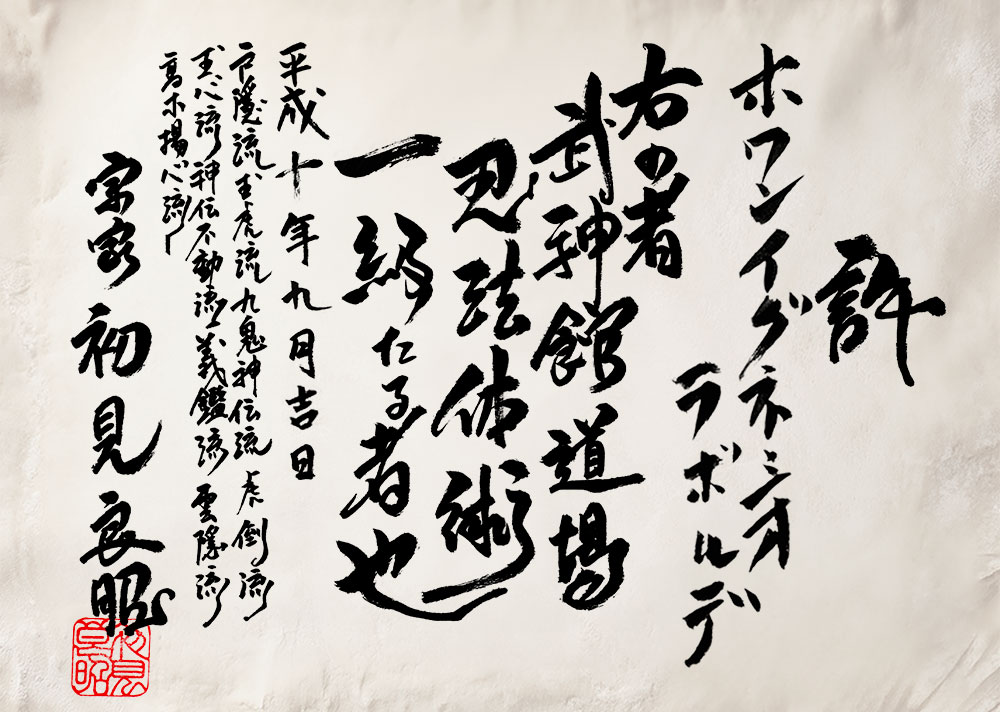 許
ホワンイグネシオ
ラボルデ
右の者
武神館道場
忍法体術
一級たる者也
平成十年九月吉日
戸隠流玉虎流九鬼神伝流虎倒流
玉心流神伝不動流義鑑流雲隠流
高木揚心流
宗家初見良昭
初見良昭